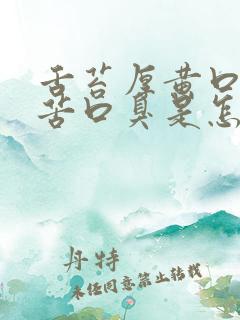 舌苔厚黄口
苦口臭是怎
丹特
未经同意禁止转载